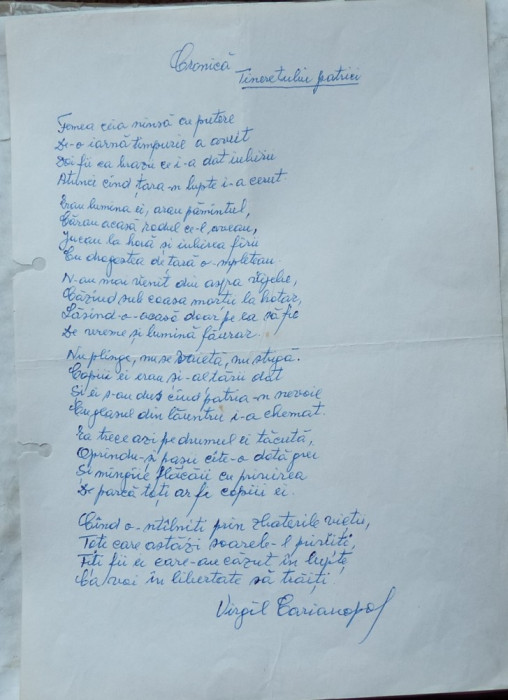 Cronică
Tineretului patriei
Femea ceia ninsă cu putere
De-o iarnă timpurie a avut
Doi fii ca brazii ce i-a dat iubirii
Atunci cînd țara-n lupte i-a cerut.
Erau lumina ei, arau pămîntul,
Cărau acasă rodul ce-l aveau,
Jucau la horă și iubirea firii
Cu dragostea de țară o-mpleteau.
N-au mai venit din astra vijelie,
Căzînd sub coasa morții la hotar,
Lăsînd-o acasă doar pe ea să fie
De vreme și lumină făurar.
Nu plînge, nu se vaietă, nu strigă.
Copiii ei erau și-al țării dat
Și ei s-au dus cînd patria-n nevoie
Cu glasul din lăuntru i-a chemat.
Ea trece azi pe drumul ei tăcută,
Oprindu-și pașii cîte-o dată grei
Și mîngîie flăcăii cu privirea
De parcă toți ar fi copiii ei.
Cînd o-ntîlniti prin vieții,
Toti care astăzi soarele-l purtiti,
Fiti fii ei care-au căzut în lupte
Ca voi în libertate să trăiți
Virgil Carianopol